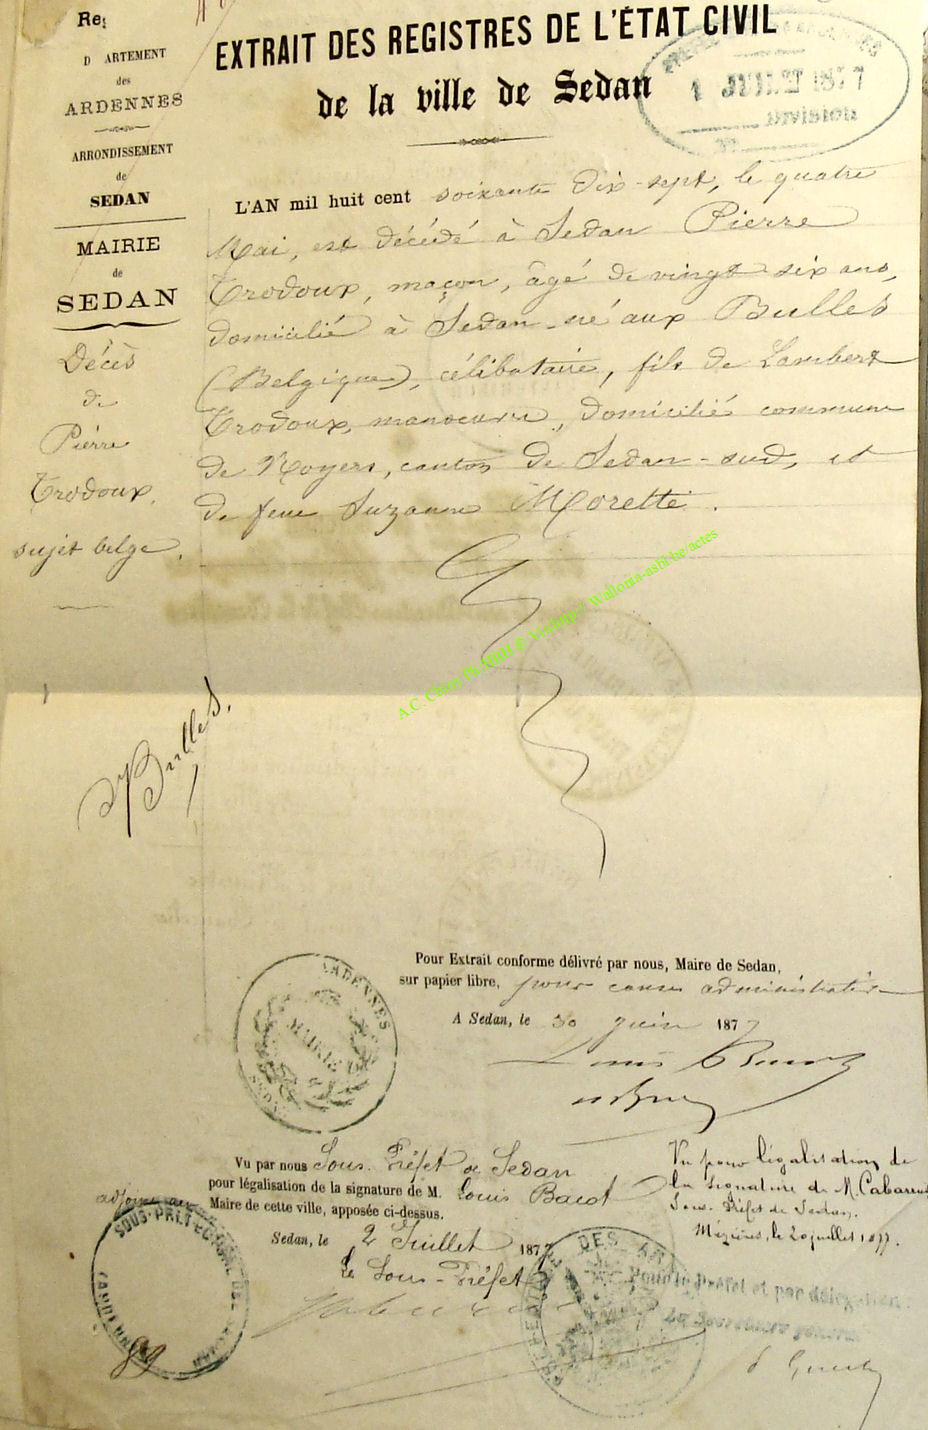 EXTRAIT DES REGISTRES DE L'ÉTAT CIVIL
de la ville de Sedan
DÉPARTEMENT
des
ARDENNES
ARRONDISSEMENT
de
SEDAN
MAIRIE
de
SEDAN
Décès
de
Pierre
Trodoux,
sujet belge.
JUILLET 1877
Division
L'AN mil huit cent soixante dix-sept, le quatre
Mai, est décédé à Sedan Pierre
Trodoux, maçon, âgé de vingt-six ans,
domicilié à Sedan né aux Bulles
(Belgique), célibataire, fils de Lambert
Trodoux, manoeuvre, domicilié commune
de Noyers, canton de Sedan-sud, et
de feue Suzanne Morette.
A.C. Chiny Wallonia-asbl-be/actes
Bulles.
Pour Extrait conforme délivré par nous, Maire de Sedan,
sur papier libre, pour cause administrative
A Sedan, le 30 Juin 1877
ARDENNES
MAIRIE
SEDAN
Vu par nous Sous-Préfet de Sedan
pour légalisation de la signature de M. Louis Bacot
adjoint au Maire de cette ville, apposée ci-dessus.
Sedan, le 2 Juillet 1877
Le Sous-Préfet
Vu pour légalisation de
la signature de M. Cabarrus
Sous-Préfet de Sedan.
Mézières, le 20 juillet 1877.
Pour le Préfet et par délégation:
Le Secrétaire général
SOUS-PRÉFECTURE DE SEDAN
(ARDENNES)
89